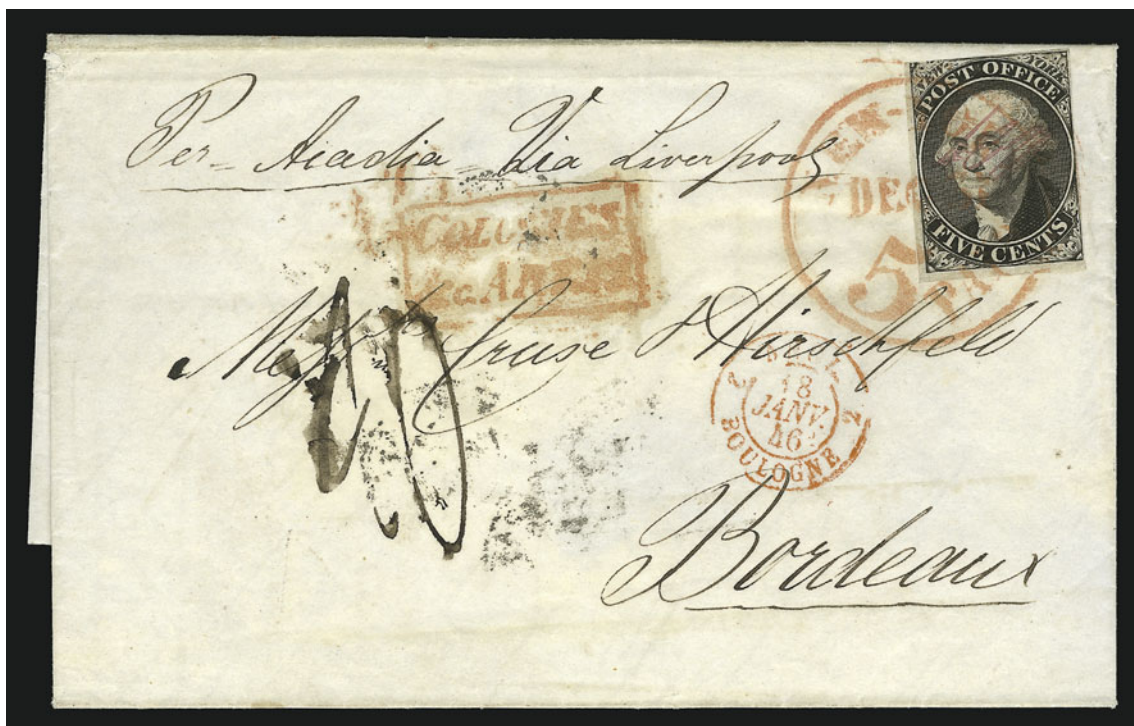 Per Acadia Via Liverpool
NEW YORK
POST OFFICE
FIVE CENTS
DEC
5
COLONIES
&c. ART
Messrs Cruse & Hirschfeld
18
JANV.
46
BOULOGNE
2 2
Bordeaux